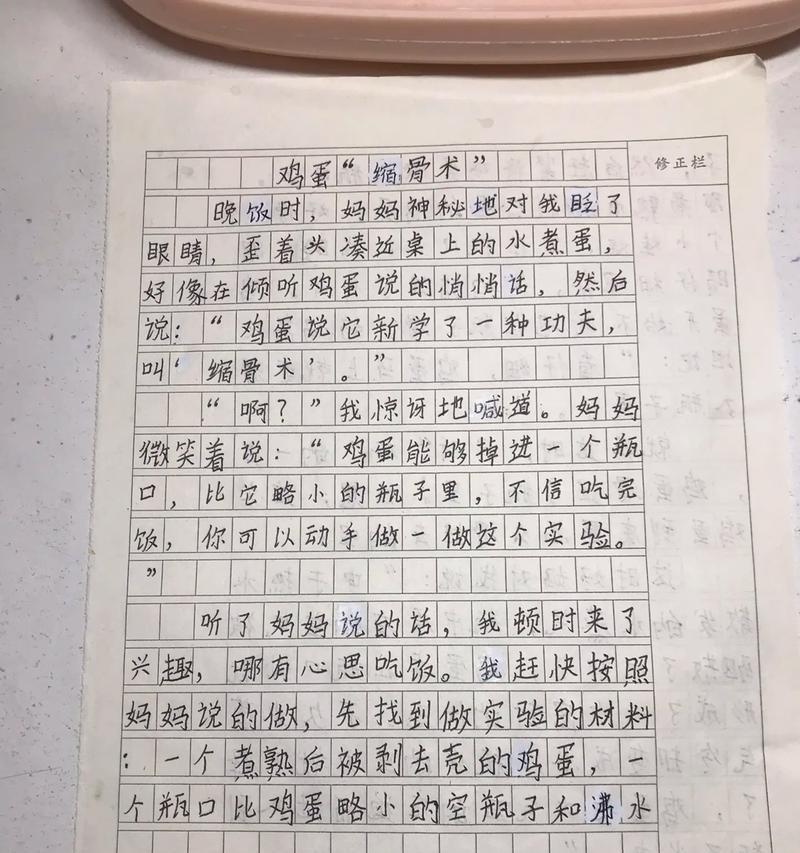 鸡蛋“缩骨术”
修正栏
晚饭时，妈妈神秘地对我眨了
眼睛，歪着头凑近桌上的水煮蛋，
好像在倾听鸡蛋说的悄悄话，然后
说：“鸡蛋说它新学了一种功夫，
叫‘缩骨术’。”
“啊？”我惊讶地喊道。妈妈
微笑着说：“鸡蛋能够掉进一个瓶
口，比它略小的瓶子里，不信吃完
饭，你可以动手做一做这个实验。
”
听了妈妈说的话，我顿时来了
兴趣，哪有心思吃饭。我赶快按照
妈妈说的做，先找到做实验的材料
：一个煮熟后被剥去壳的鸡蛋，一
个瓶口比鸡蛋略小的空瓶子和沸水